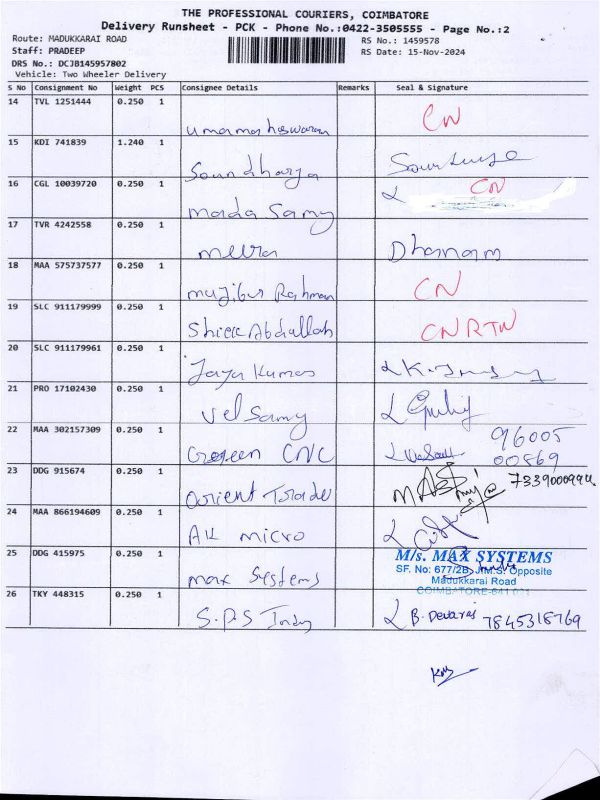 THE PROFESSIONAL COURIERS, COIMBATORE
Delivery Runsheet - PCK - Phone No.:0422-3505555 - Page No.:2
Route: MADUKKARAI ROAD RS No.: 1459578
Staff: PRADEEP RS Date: 15-Nov-2024
DRS No.: DCJB145957802
Vehicle: Two Wheeler Delivery
S No Consignment No Weight PCS Consignee Details Remarks Seal & Signature
14 TVL 1251444 0.250 1 Umamaheswaran CN
15 KDI 741839 1.240 1 Soundharya
16 CGL 10039720 0.250 1 mada Samy CN
17 TVR 4242558 0.250 1 meera Dhanam
18 MAA 575737577 0.250 1 mujibur Rahman CN
19 SLC 911179999 0.250 1 Shiek Abdallah CNRTN
20 SLC 911179961 0.250 1 Jaya Kumar
21 PRO 17102430 0.250 1 Vel Samy
22 MAA 302157309 0.250 1 Green CNC 96005
00869
23 DDG 915674 0.250 1 Orient Trade 7339000994
24 MAA 866194609 0.250 1 AK micro
25 DDG 415975 0.250 1 max Systems M/s. MAX SYSTEMS
SF. No: 677/2B, J.M.S. Opposite
Madukkarai Road
COIMBATORE-641 021
26 TKY 448315 0.250 1 S.P.S B. Devaraj 7845318769